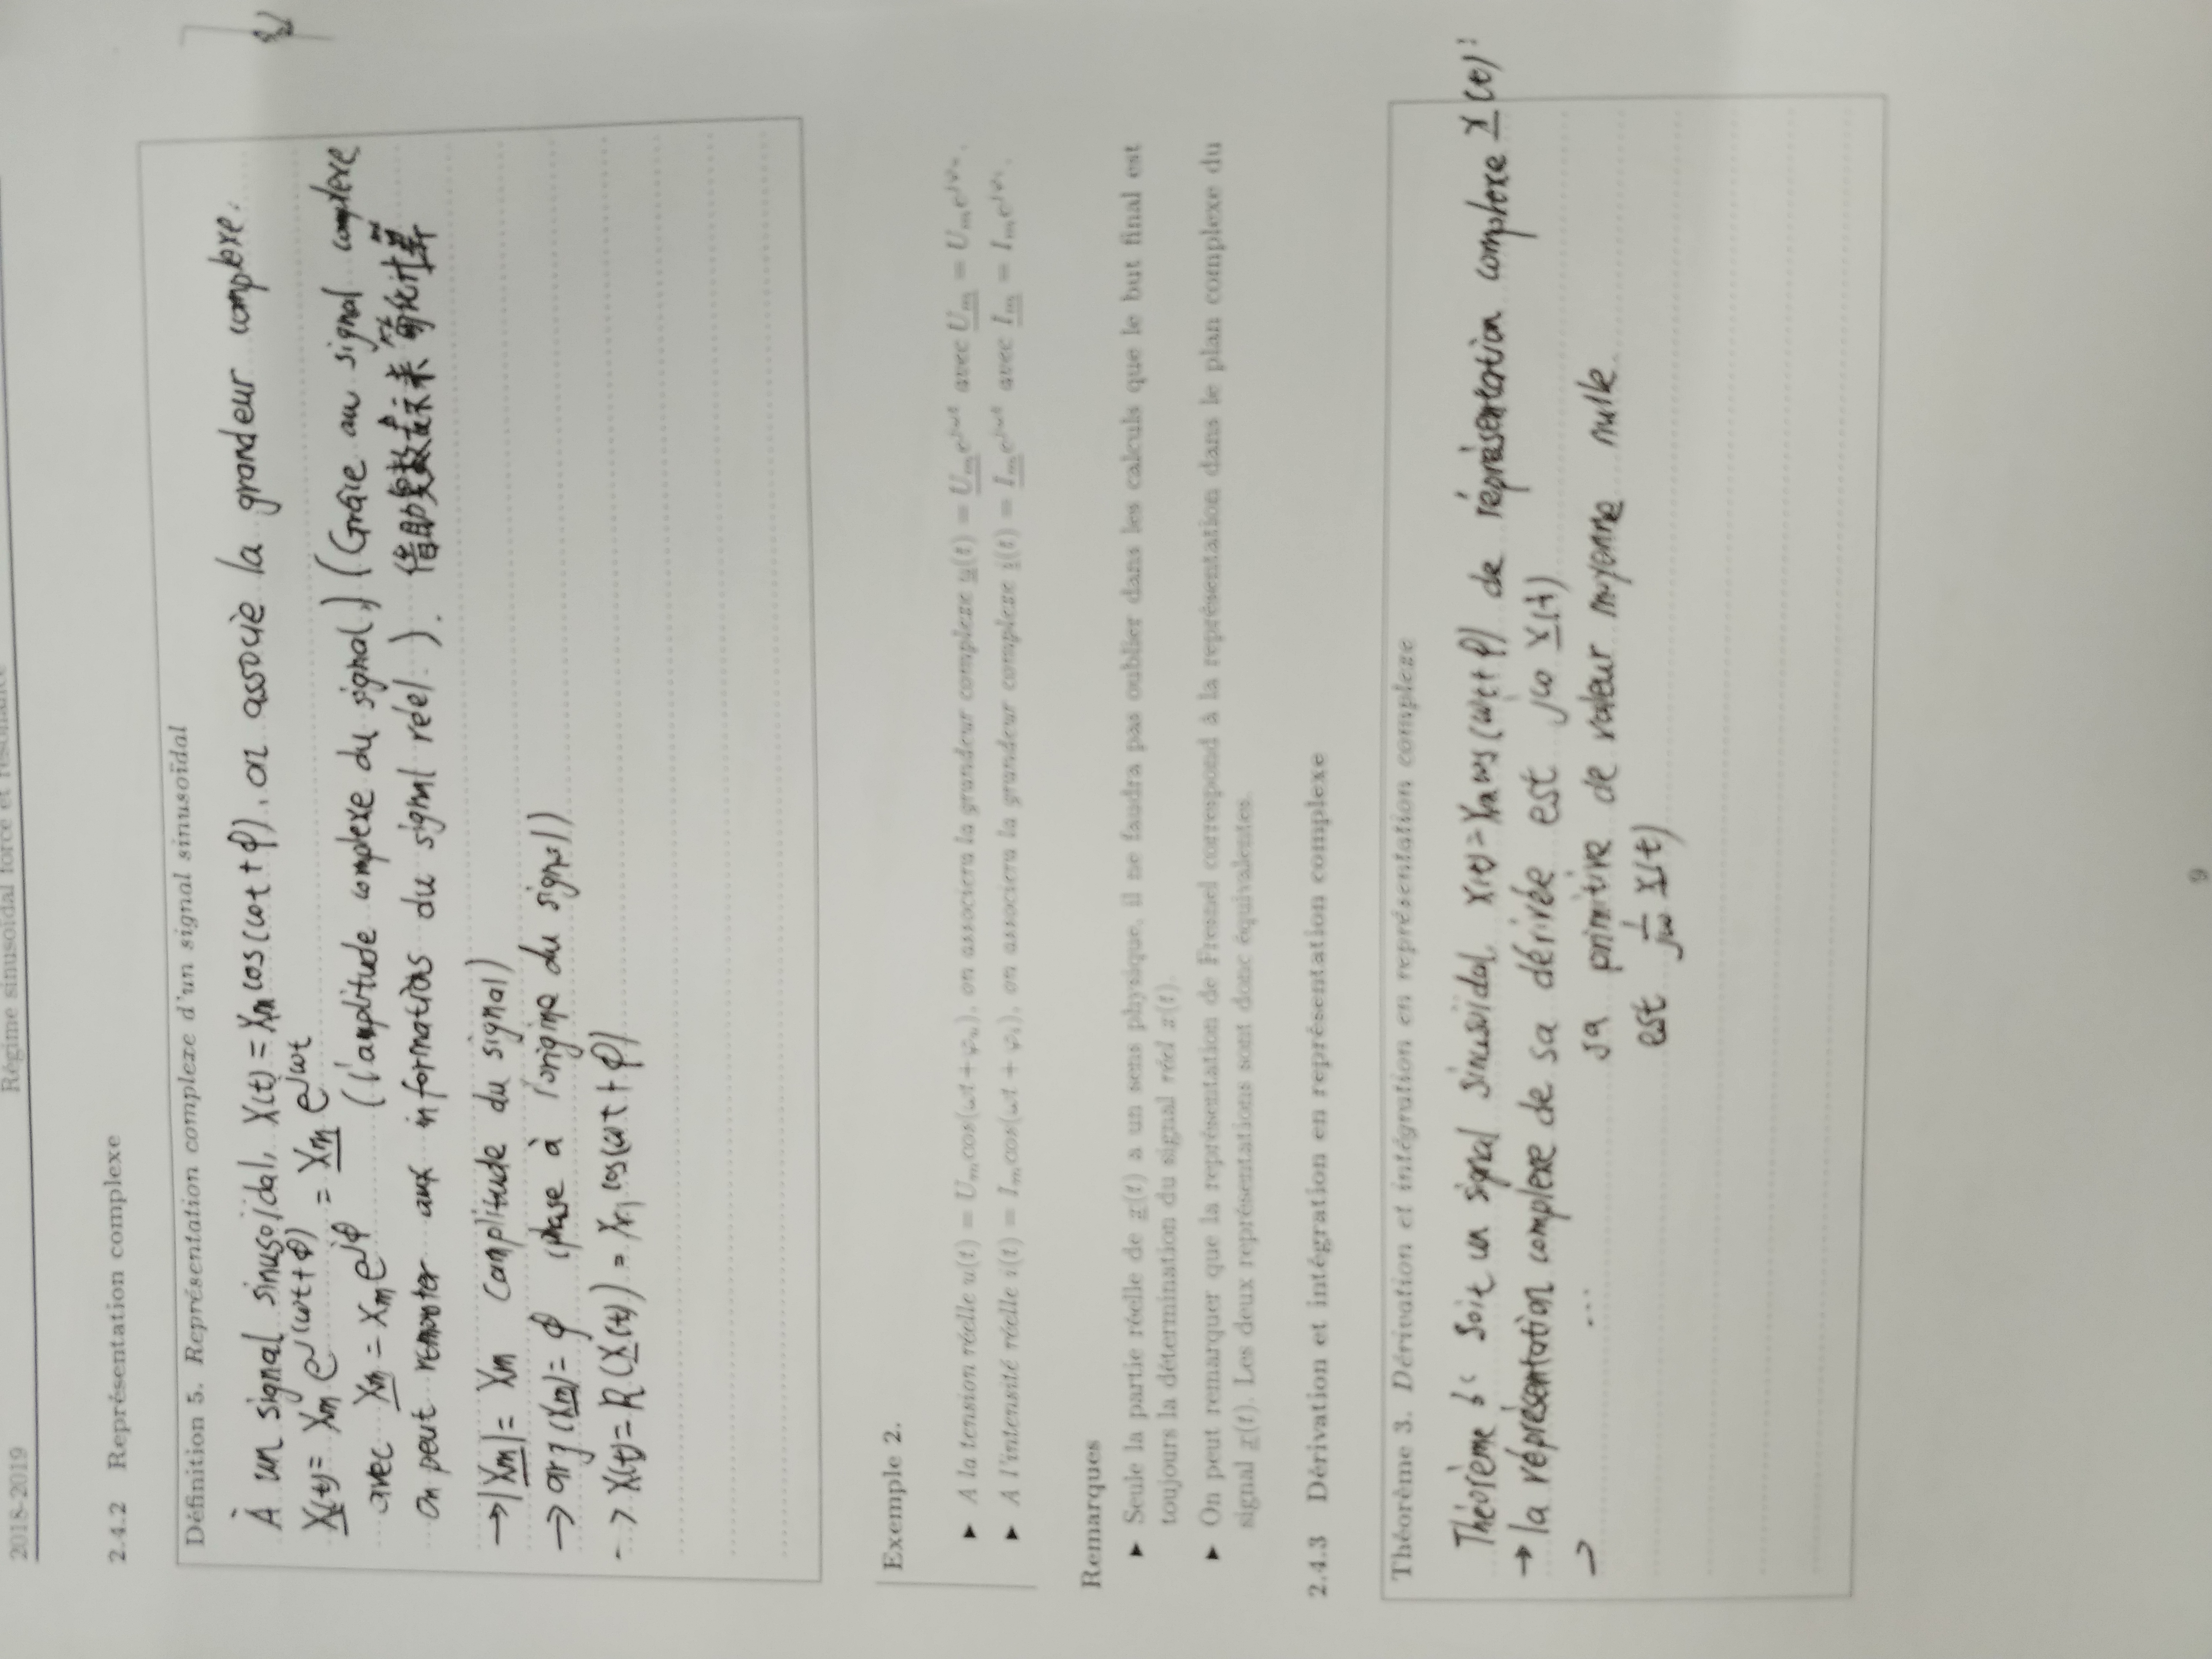 2018-2019 Régime sinusoïdal forcé et résonance
2.4.2 Représentation complexe
Définition 5. Représentation complexe d'un signal sinusoïdal
À un signal sinusoïdal, X(t) = Xm cos(ωt + φ), on associè la grandeur complexe.
X̲(t) = Xm e^j(ωt+φ) = X̲m̲ e^jωt
avec X̲m̲ = Xm e^jφ (l'amplitude complexe du signal) (Grâce au signal complexe
on peut remonter aux informations du signal réel.). 借助复数表示来简化计算
→ |X̲m̲| = Xm (amplitude du signal)
→ arg(X̲m̲) = φ (phase à l'origine du signal)
→ X(t) = R(X̲(t)) = Xm cos(ωt + φ)
Exemple 2.
► A la tension réelle u(t) = Umcos(ωt + φu), on associera la grandeur complexe u̲(t) = U̲m̲e^jωt avec U̲m̲ = Ume^jφu.
► A l'intensité réelle i(t) = Imcos(ωt + φi), on associera la grandeur complexe i̲(t) = I̲m̲e^jωt avec I̲m̲ = Ime^jφi.
Remarques
► Seule la partie réelle de x̲(t) a un sens physique, il ne faudra pas oublier dans les calculs que le but final est
toujours la détermination du signal réel x(t).
► On peut remarquer que la représentation de Fresnel correspond à la représentation dans le plan complexe du
signal x̲(t). Les deux représentations sont donc équivalentes.
2.4.3 Dérivation et intégration en représentation complexe
Théorème 3. Dérivation et intégration en représentation complexe
Théorème : Soit un signal sinusoïdal, X(t) = Xm cos(ωt + φ) de réprésentation complexe X̲(t) :
→ la réprésentation complexe de sa dérivée est jω X̲(t)
→ ... sa primitive de valeur moyenne nulle
est 1/jω X̲(t)
9